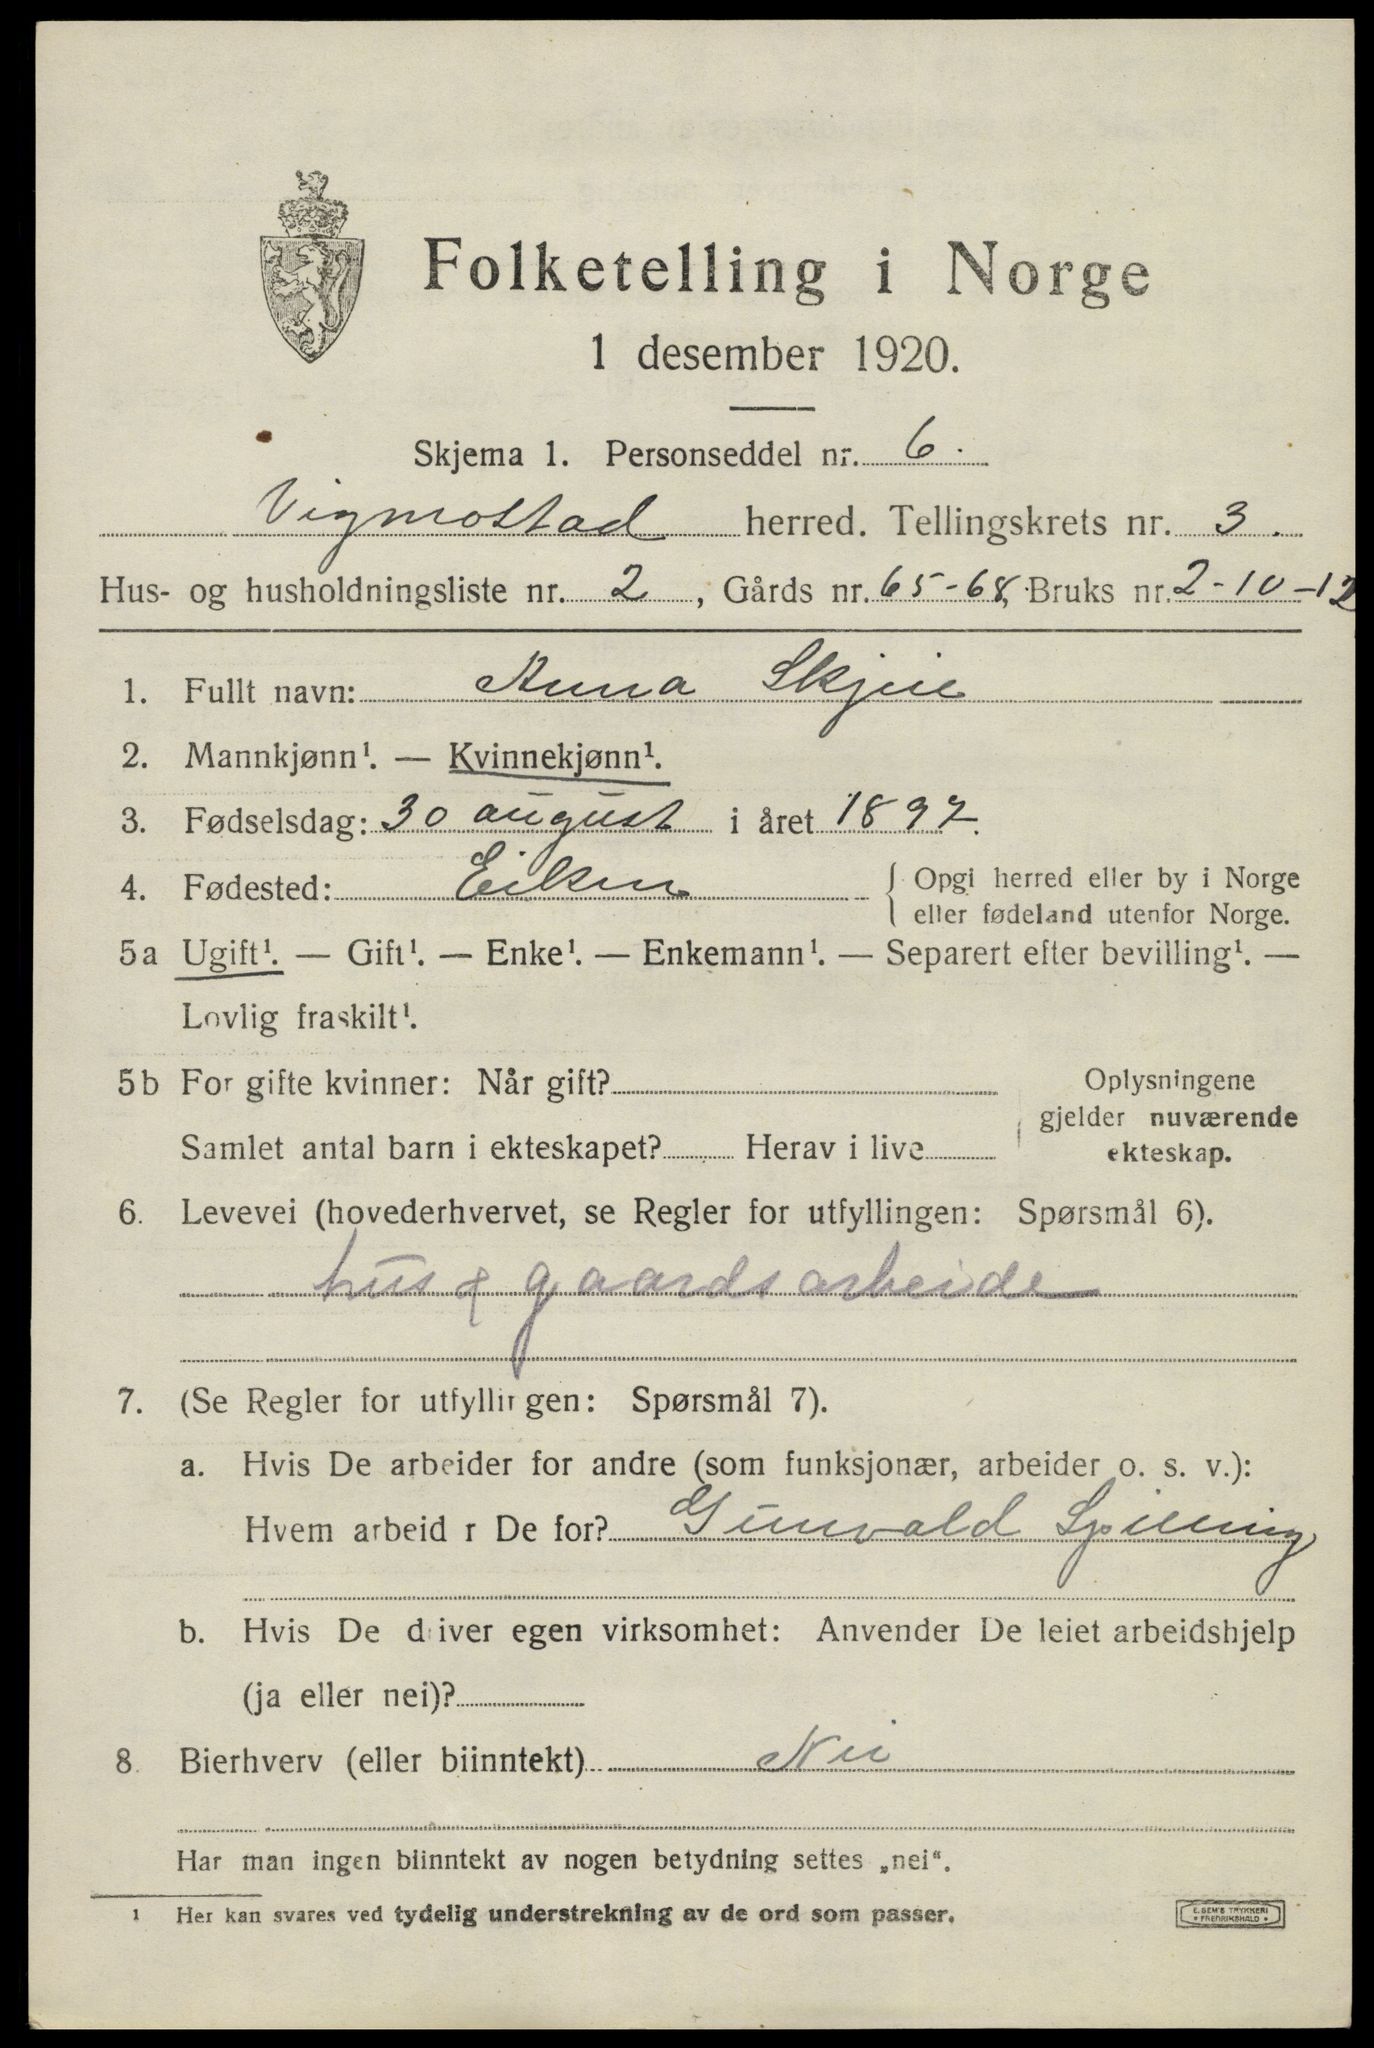 Folketelling i Norge
1 desember 1920.
Skjema 1. Personseddel nr. 6.
Vigmostad herred. Tellingskrets nr. 3.
Hus- og husholdningsliste nr. 2, Gårds nr. 65-68, Bruks nr. 2-10-12
1. Fullt navn: Anna Skjeie
2. Mannkjønn¹. — Kvinnekjønn¹.
3. Fødselsdag: 30 august i året 1897.
4. Fødested: Eiken { Opgi herred eller by i Norge
eller fødeland utenfor Norge.
5a Ugift¹. — Gift¹. — Enke¹. — Enkemann¹. — Separert efter bevilling¹. —
Lovlig fraskilt¹.
5b For gifte kvinner: Når gift? Oplysningene
gjelder nuværende
Samlet antal barn i ekteskapet? Herav i live
ekteskap.
6. Levevei (hovederhvervet, se Regler for utfyllingen: Spørsmål 6).
hus & gaardsarbeide
7. (Se Regler for utfyllingen: Spørsmål 7).
a. Hvis De arbeider for andre (som funksjonær, arbeider o. s. v.):
Hvem arbeid r De for? Gunvald Spilling
b. Hvis De driver egen virksomhet: Anvender De leiet arbeidshjelp
(ja eller nei)?
8. Bierhverv (eller biinntekt) Nei
Har man ingen biinntekt av nogen betydning settes „nei“.
1 Her kan svares ved tydelig understrekning av de ord som passer.
E. SEM'S TRYKKERI
• FREDRIKSHALD •